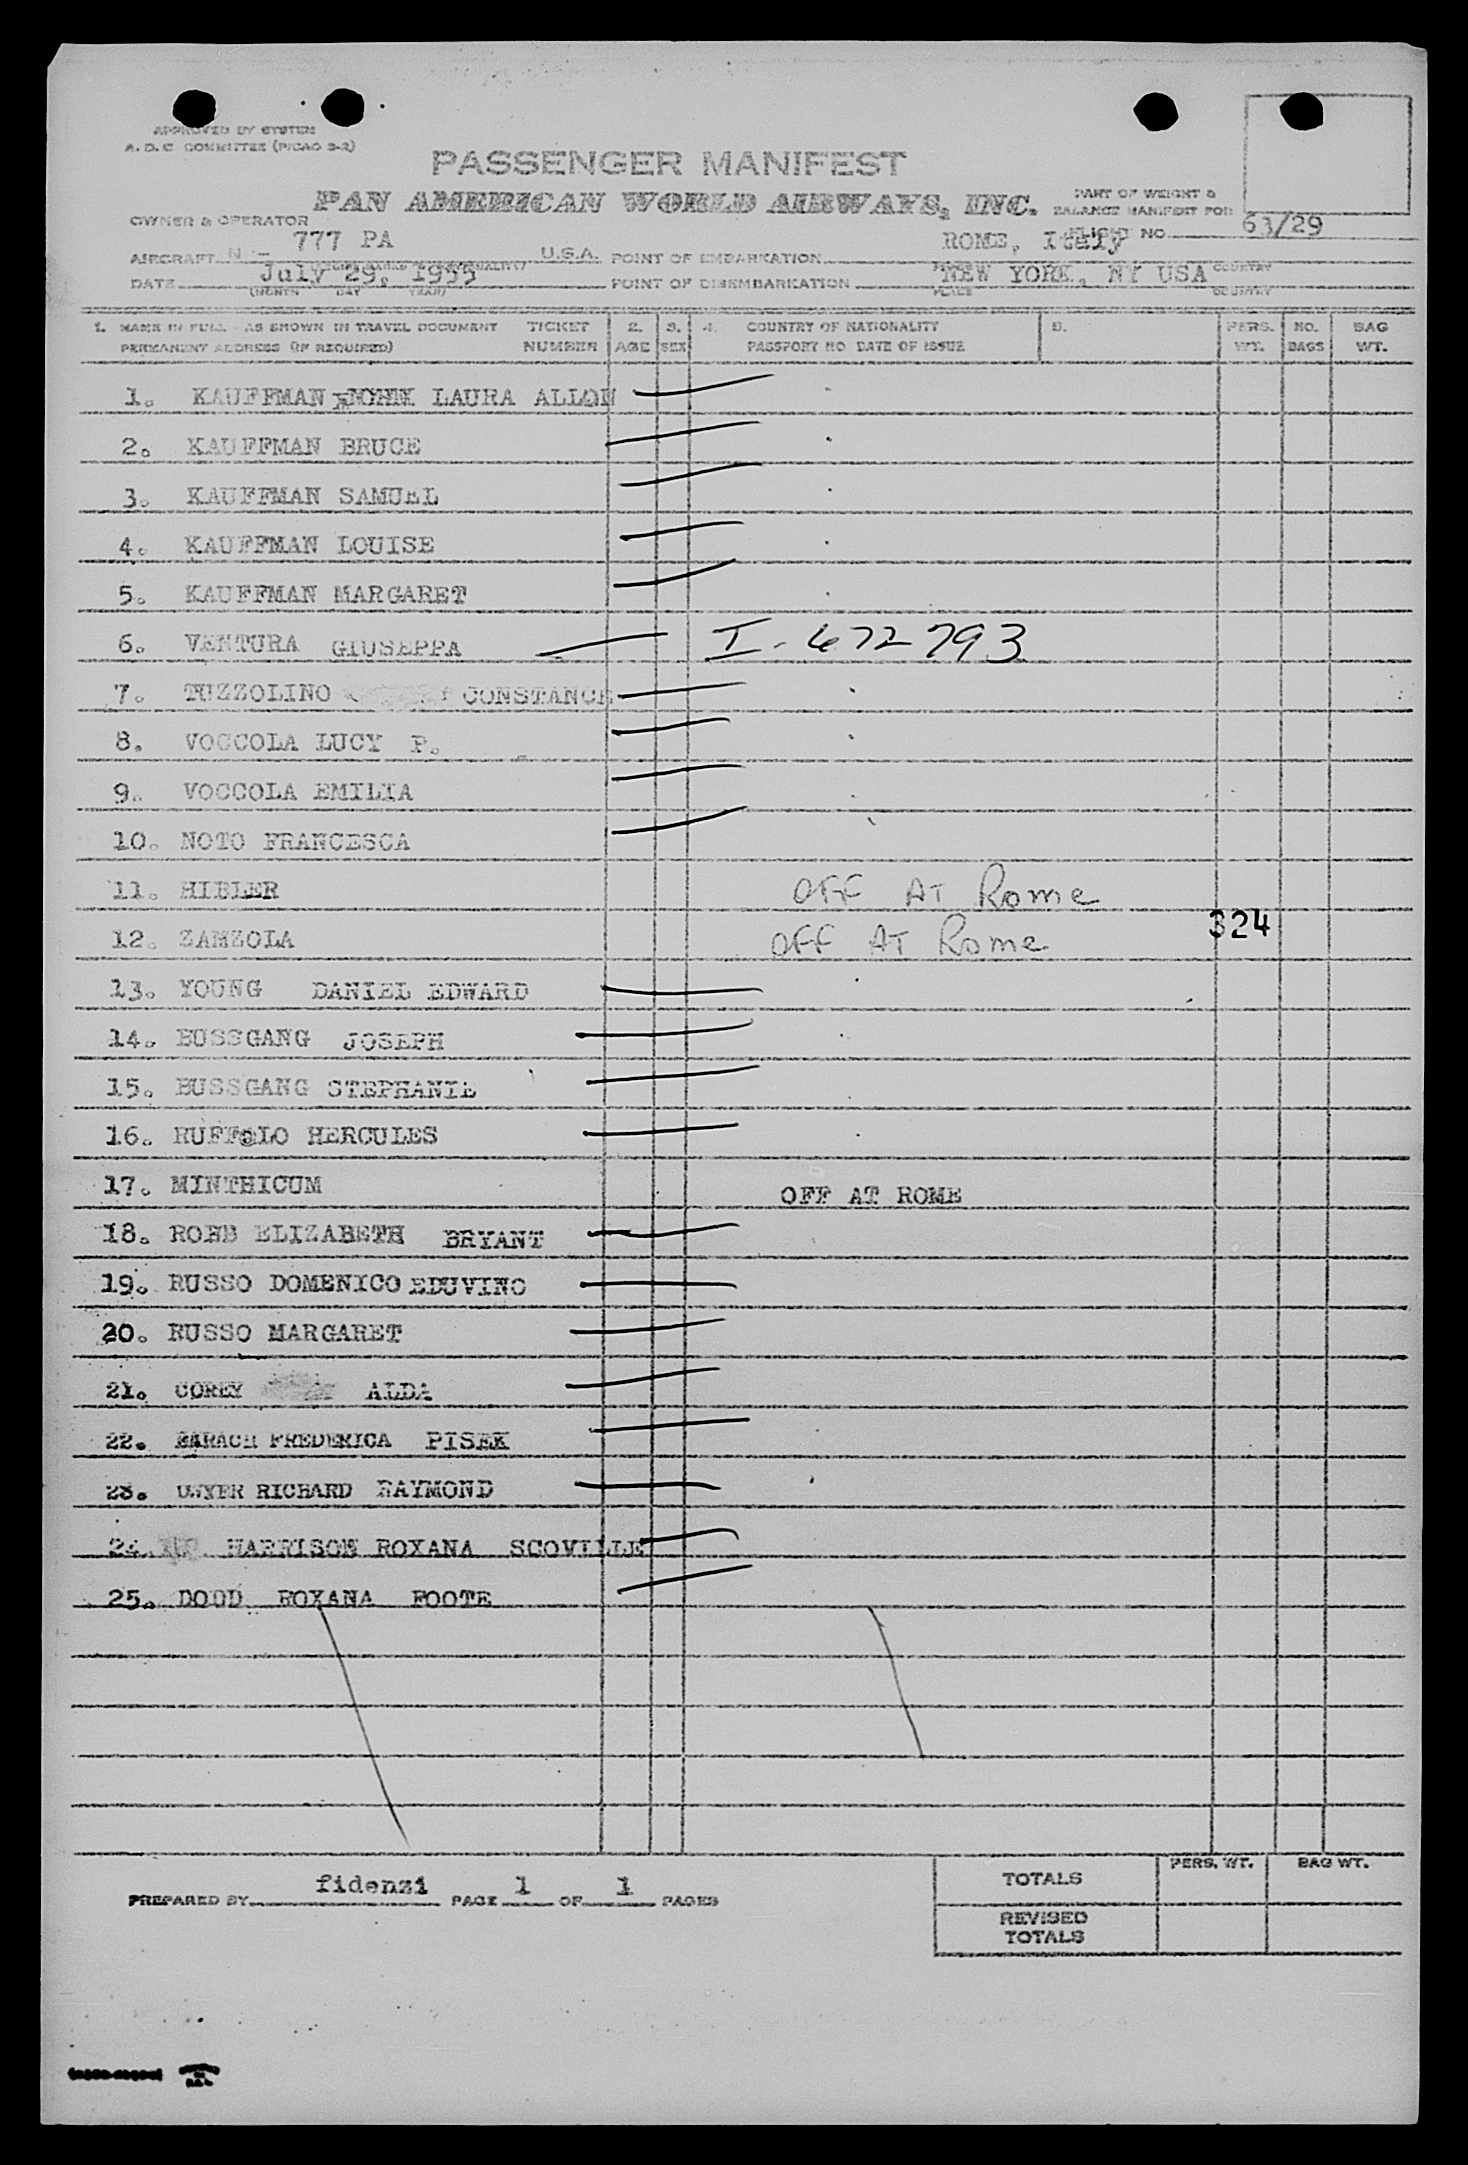 APPROVED BY SYSTEM
A. D. C. COMMITTEE (PICAO 3-2)
PASSENGER MANIFEST
PAN AMERICAN WORLD AIRWAYS, INC.
PART OF WEIGHT &
BALANCE MANIFEST FOR
OWNER & OPERATOR
FLIGHT NO. 63/29
AIRCRAFT N - 777 PA U.S.A. POINT OF EMBARKATION ROME, Italy
DATE July 29, 1955 POINT OF DISEMBARKATION NEW YORK, NY USA
(MONTH DAY YEAR) PLACE COUNTRY
1. NAME IN FULL - AS SHOWN IN TRAVEL DOCUMENT TICKET 2. 3. 4. COUNTRY OF NATIONALITY 5. PERS. NO. BAG
PERMANENT ADDRESS (IF REQUIRED) NUMBER AGE SEX PASSPORT NO DATE OF ISSUE WT. BAGS WT.
1. KAUFFMAN LAURA ALLON
2. KAUFFMAN BRUCE
3. KAUFFMAN SAMUEL
4. KAUFFMAN LOUISE
5. KAUFFMAN MARGARET
6. VENTURA GIUSEPPA I-672793
7. TUZZOLINO CONSTANCE
8. VOCCOLA LUCY P.
9. VOCCOLA EMILIA
10. NOTO FRANCESCA
11. HIBLER OFF AT Rome
12. ZAMZOLA OFF AT Rome 324
13. YOUNG DANIEL EDWARD
14. BUSSGANG JOSEPH
15. BUSSGANG STEPHANIE
16. RUFFOLO HERCULES
17. MINTHICUM OFF AT ROME
18. ROBB ELIZABETH BRYANT
19. RUSSO DOMENICO EDUVINO
20. RUSSO MARGARET
21. COREY ALDA
22. BARACH FREDERICA PISEK
23. DWYER RICHARD RAYMOND
24. HARRISON ROXANA SCOVILLE
25. DODD ROXANA FOOTE
PREPARED BY fidenzi PAGE 1 OF 1 PAGES
TOTALS PERS. WT. BAG WT.
REVISED
TOTALS